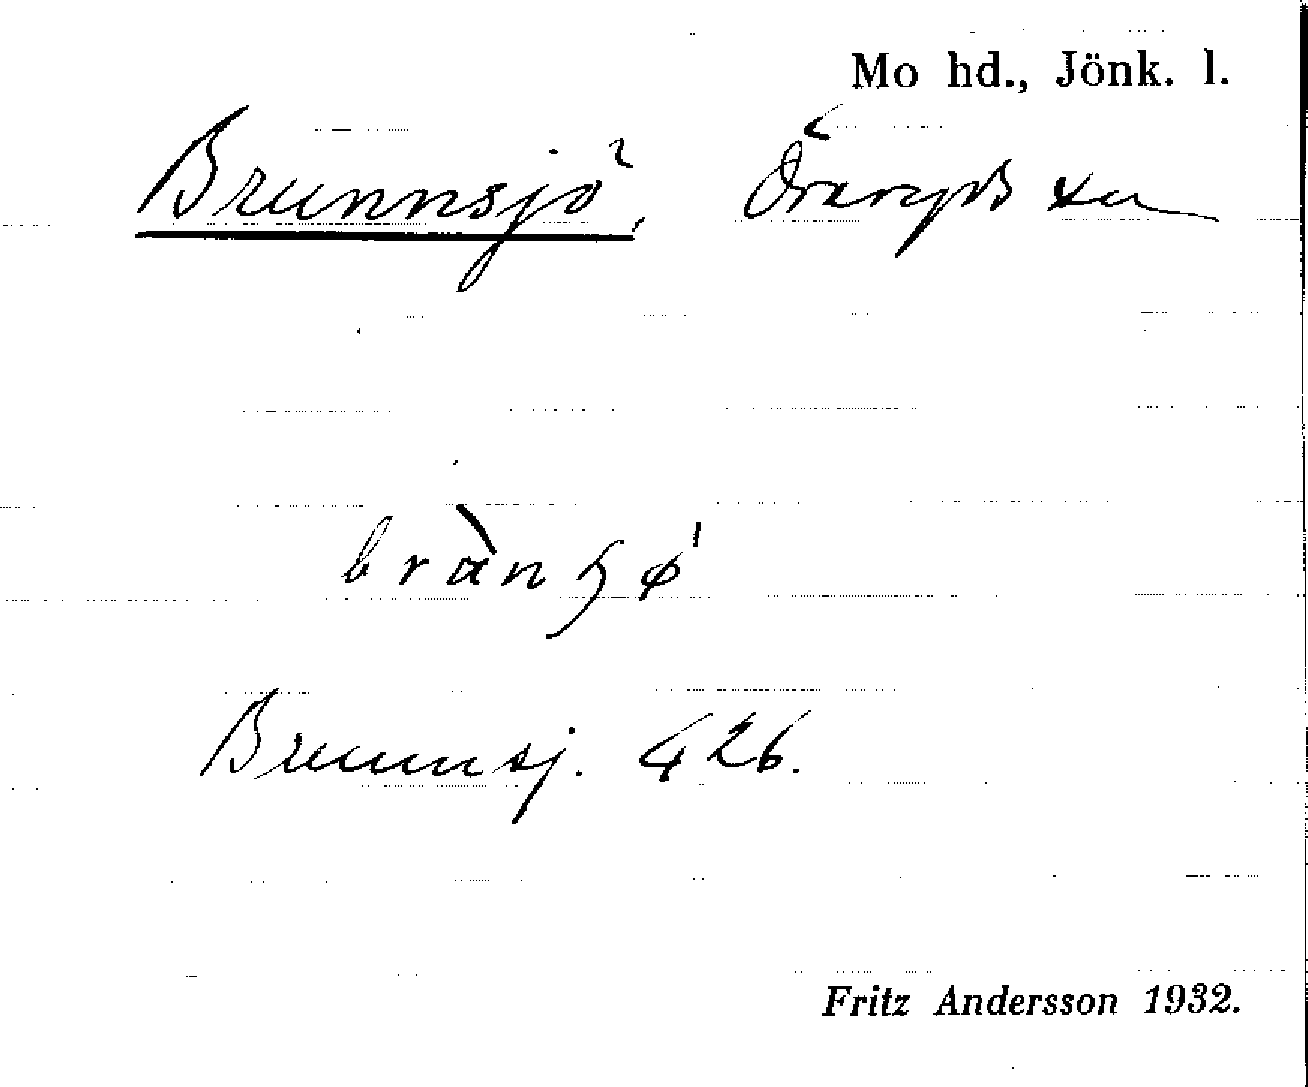 Mo hd., Jönk. l.
Brunnsjö, Öraryds sn
Brunnsj. 426.
Fritz Andersson 1932.